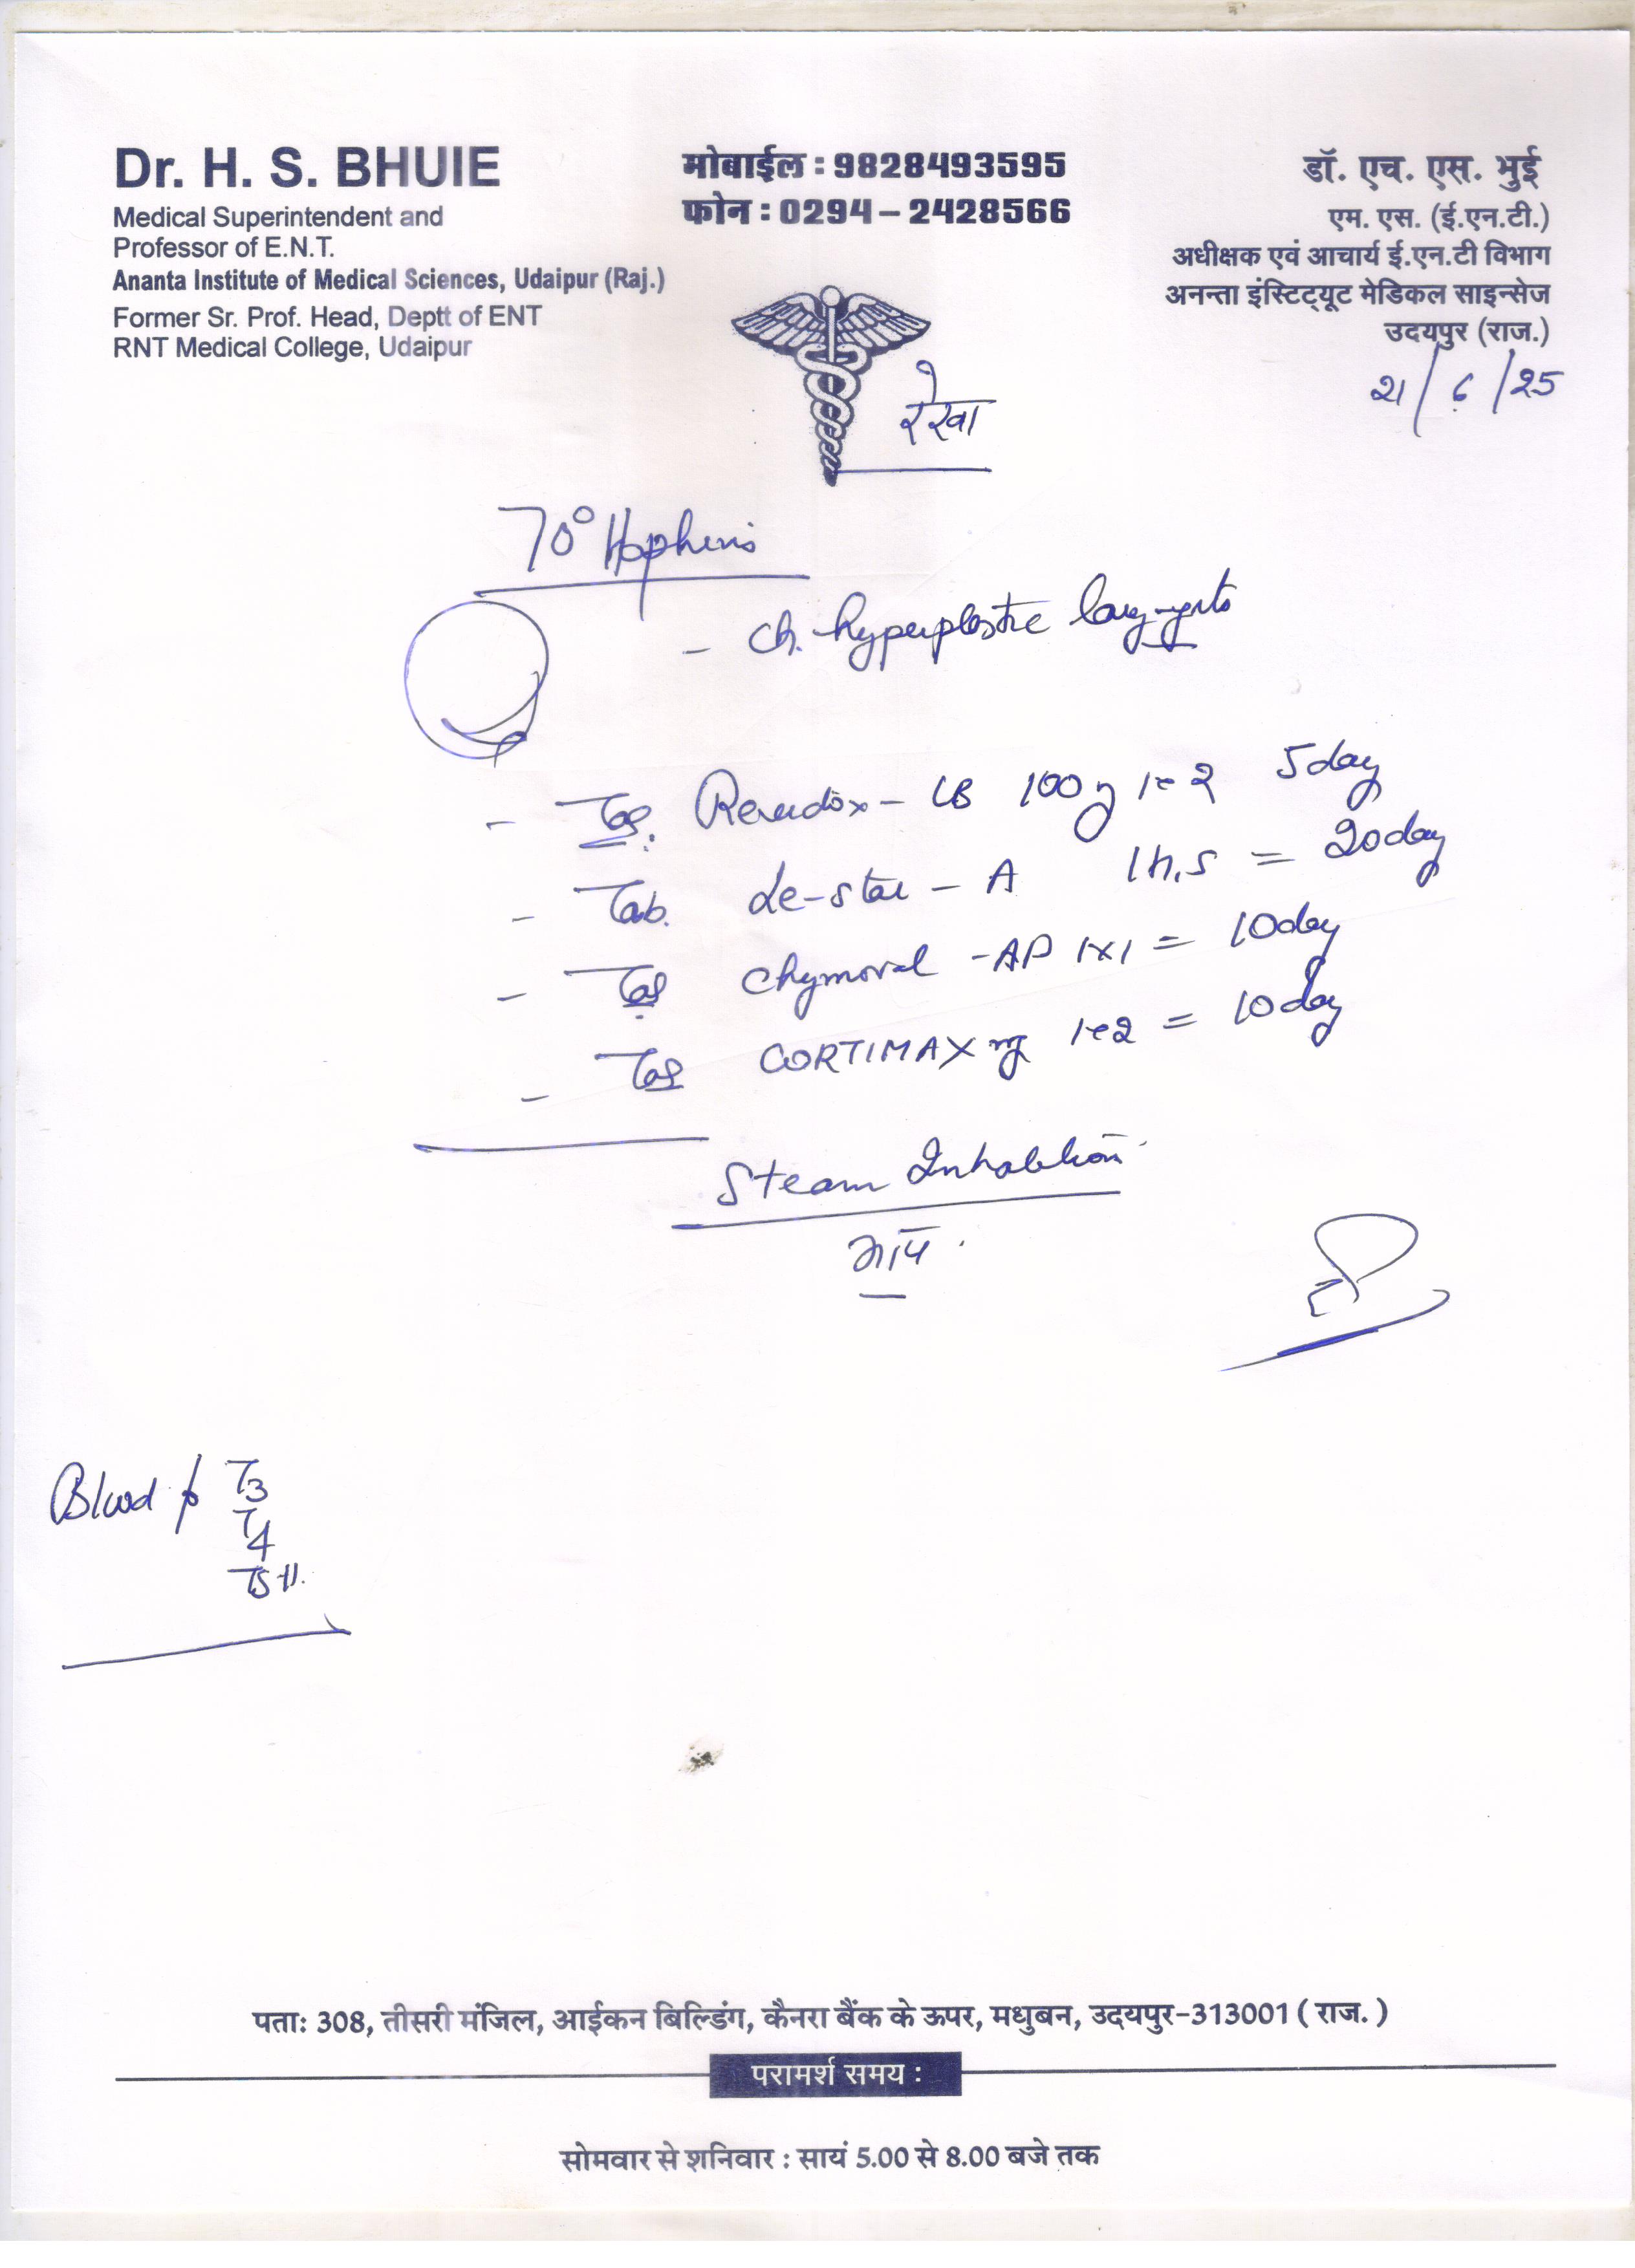 Dr. H. S. BHUIE
Medical Superintendent and
Professor of E.N.T.
Ananta Institute of Medical Sciences, Udaipur (Raj.)
Former Sr. Prof. Head, Deptt of ENT
RNT Medical College, Udaipur
मोबाईल : 9828493595
फोन : 0294-2428566
डॉ. एच. एस. भुई
एम. एस. (ई.एन.टी.)
अधीक्षक एवं आचार्य ई.एन.टी विभाग
अनन्ता इंस्टिट्यूट मेडिकल साइन्सेज
उदयपुर (राज.)
21/6/25
रेखा
70° Hopkins
- Ch. hyperplastic laryngitis
- Tab. - LB 100 5 day
- Tab. - A 1 h.s = 20 day
- Tab Chymoral -AP 1x1 = 10 day
- Tab CORTIMAX = 10 day
Steam Inhalation
भाप
Blood f T3
T4
TSH.
पताः 308, तीसरी मंजिल, आईकन बिल्डिंग, कैनरा बैंक के ऊपर, मधुबन, उदयपुर-313001 ( राज. )
परामर्श समय :
सोमवार से शनिवार : सायं 5.00 से 8.00 बजे तक